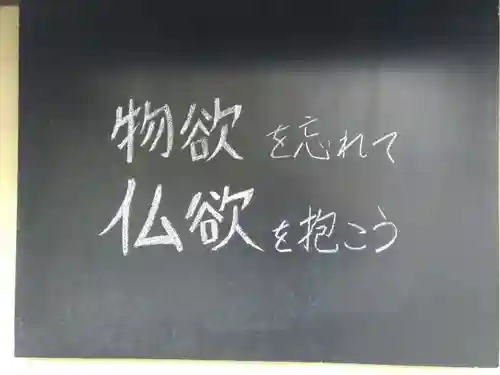 物欲を忘れて
仏欲を抱こう